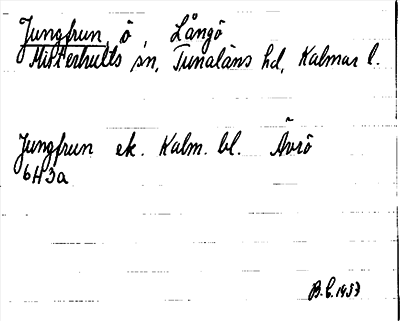 Jungfrun, ö, Långö
Misterhults sn, Tunaläns hd, Kalmar l.
Jungfrun ek. Kalm. bl. Ävrö
6H3a
B.E. 1953